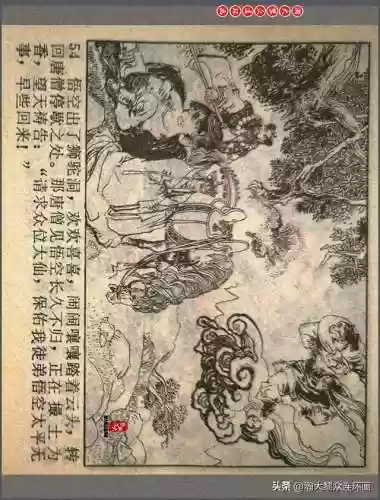 54 悟空出了狮驼洞，欢欢喜喜，闹闹嚷嚷踏着云头，转
回唐僧停歇之处。那唐僧见悟空长久不归，正在撮土为
香，望天祷告：“请求众位大仙，保佑我徒弟悟空太平无
事，早些回来！”